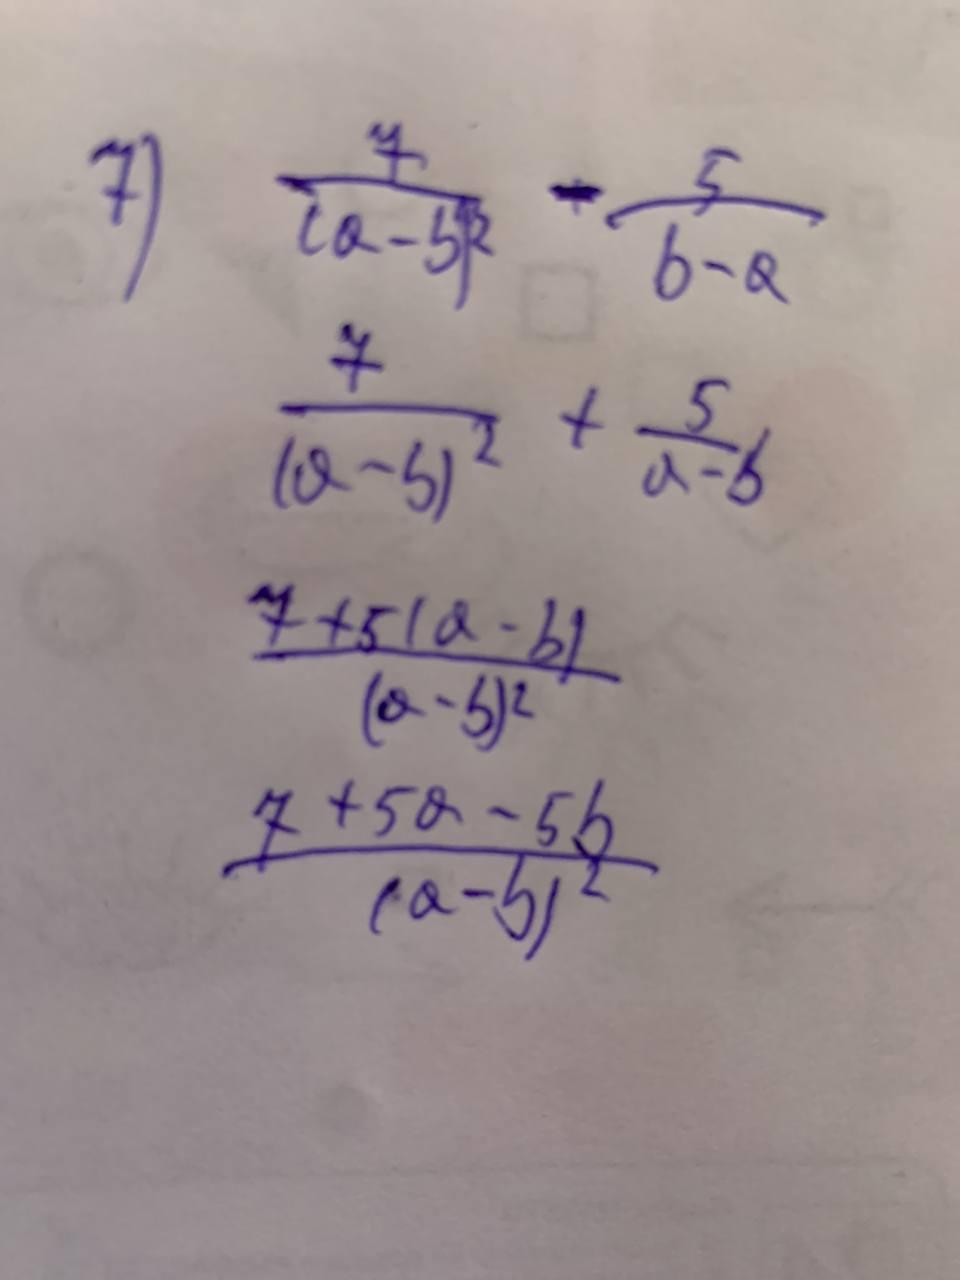 7) 7/(a-b)² - 5/(b-a)
7/(a-b)² + 5/(a-b)
(7+5(a-b))/(a-b)²
(7+5a-5b)/(a-b)²